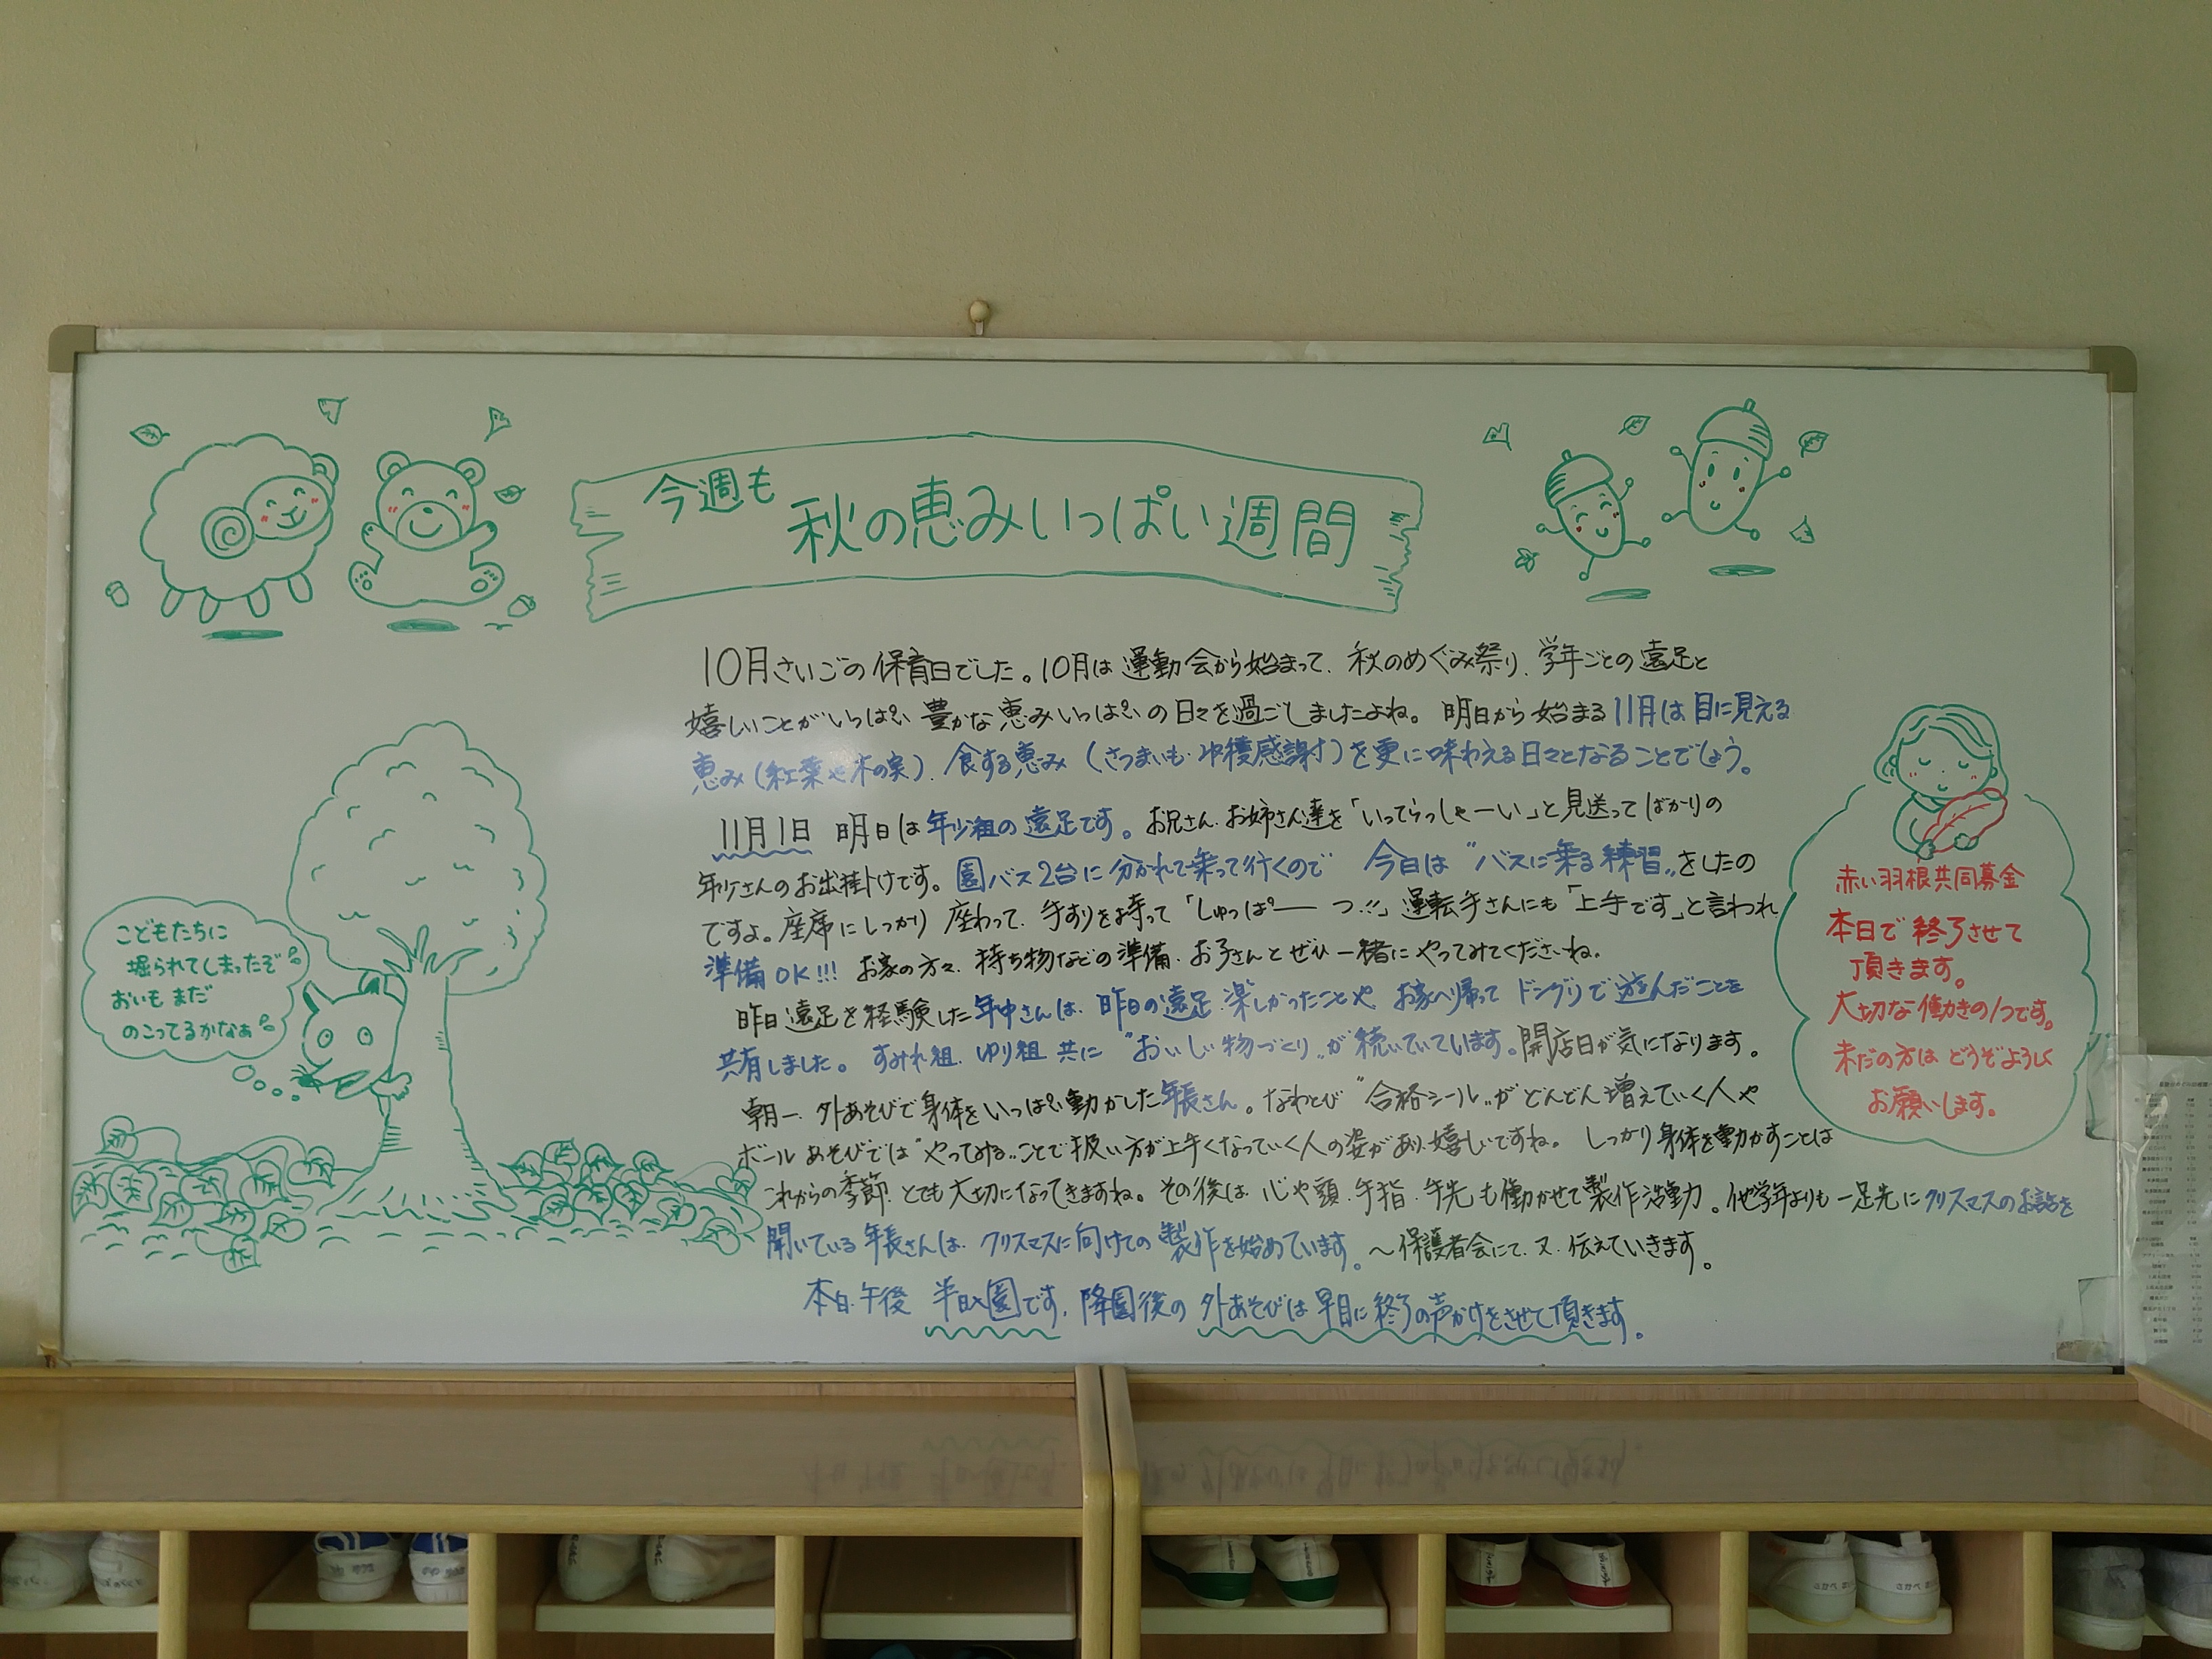 今週も
秋の恵みいっぱい週間
10月さいごの保育日でした。10月は運動会から始まって、秋のめぐみ祭り、学年ごとの遠足と
嬉しいことがいっぱい豊かな恵みいっぱいの日々を過ごしましたよね。明日から始まる11月は目に見える
恵み(紅葉や木の実)、食する恵み(さつまいも・収穫感謝)を更に味わえる日々となることでしょう。
11月1日 明日は年少組の遠足です。お兄さん、お姉さん達を「いってらっしゃーい」と見送ってばかりの
年少さんのお出掛けです。園バス2台に分かれて乗って行くので 今日は"バスに乗る練習"をしたの
ですよ。座席にしっかり座わって、手すりを持って「しゅっぱーつ!!」運転手さんにも「上手です」と言われ
準備OK!!! お家の方々、持ち物などの準備、お子さんとぜひ一緒にやってみてくださいね。
昨日遠足を経験した年中さんは、昨日の遠足、楽しかったことや、お家へ帰ってドングリで遊んだことを
共有しました。すみれ組、ゆり組共に"おいしい物づくり"が続いていています。開店日が気になります。
朝一、外あそびで身体をいっぱい動かした年長さん。なわとび"合格シール"がどんどん増えていく人や
ボールあそびでは"やってみる"ことで扱い方が上手くなっていく人の姿があり、嬉しいですね。しっかり身体を動かすことは
これからの季節、とても大切になってきますね。その後は、心や頭、手指、手先も働かせて製作活動。他学年よりも一足先にクリスマスのお話を
聞いている年長さんは、クリスマスに向けての製作を始めています。〜保護者会にて、又、伝えていきます。
本日、午後 半日入園です。降園後の外あそびは早目に終了の声かけをさせて頂きます。
こどもたちに
掘られてしまったぞ
おいもまだ
のこってるかなぁ
赤い羽根共同募金
本日で終了させて
頂きます。
大切な働きの1つです。
未だの方はどうぞよろしく
お願いします。